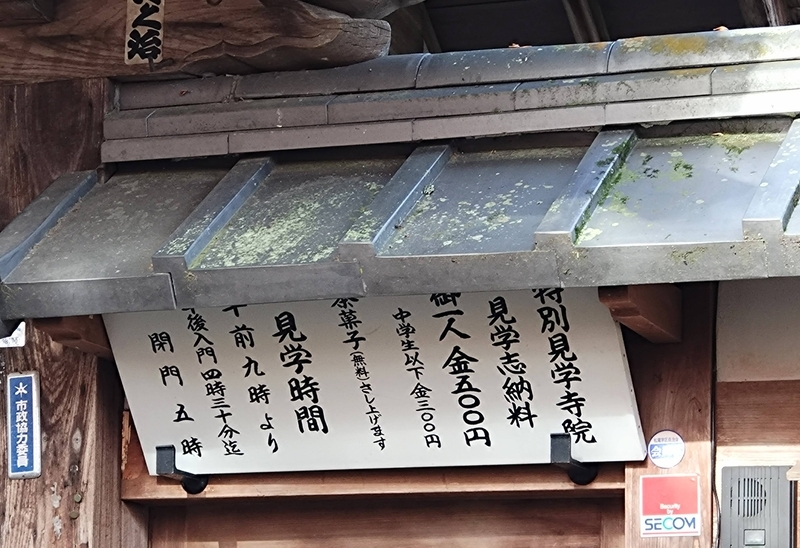 之治
特別見学寺院
見学志納料
御一人 金五〇〇円
中学生以下 金三〇〇円
茶菓子(無料)さし上げます
見学時間
午前九時より
午後入門四時三十分迄
閉門五時
市政協力委員
Security
by
SECOM